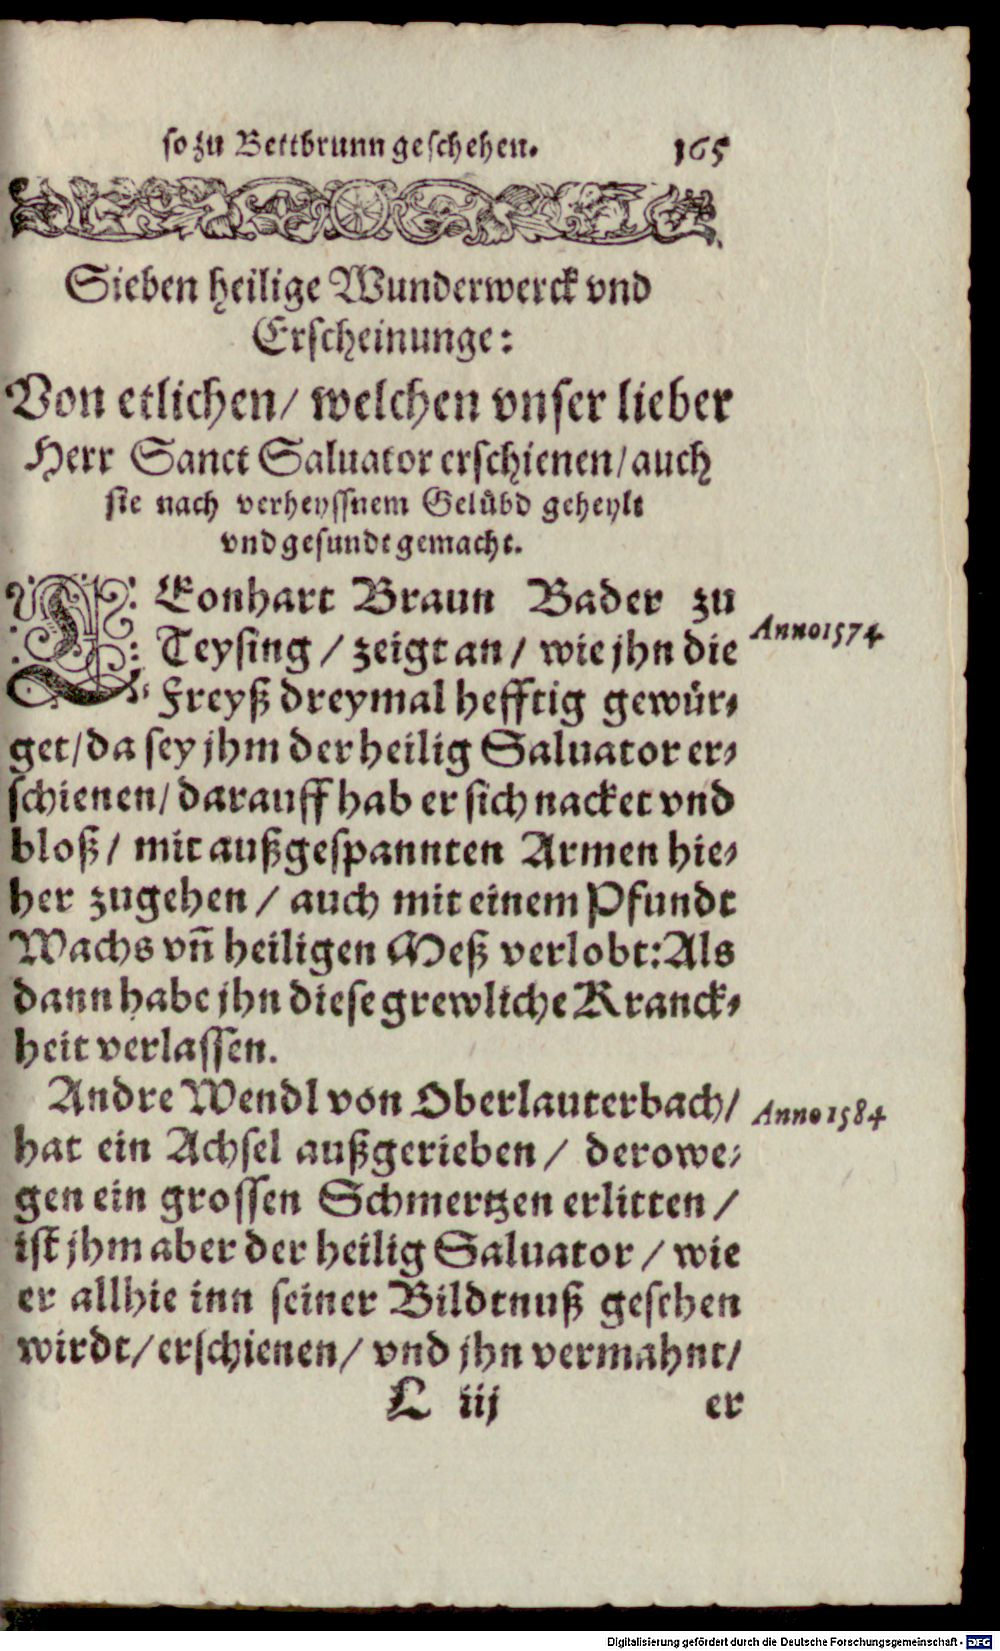 so zu Bettbrunn geschehen. 165
Sieben heilige Wunderwerck vnd
Erscheinunge:
Von etlichen/ welchen vnser lieber
Herr Sanct Saluator erschienen/ auch
sie nach verheyssnem Gelübd geheylt
vnd gesundt gemacht.
LEonhart Braun Bader zu
Teysing / zeigt an / wie jhn die
Freyß dreymal hefftig gewür-
get/ da sey jhm der heilig Saluator er-
schienen/ darauff hab er sich nacket vnd
bloß / mit außgespannten Armen hie-
her zugehen / auch mit einem Pfundt
Wachs vn̄ heiligen Meß verlobt: Als
dann habe jhn diese grewliche Kranck-
heit verlassen.
Anno 1574
Andre Wendl von Oberlauterbach/
hat ein Achsel außgerieben / derowe-
gen ein grossen Schmertzen erlitten /
ist jhm aber der heilig Saluator / wie
er allhie inn seiner Bildtnuß gesehen
wirdt/ erschienen/ vnd jhn vermahnt/
Anno 1584
L iij er
Digitalisierung gefördert durch die Deutsche Forschungsgemeinschaft - DFG